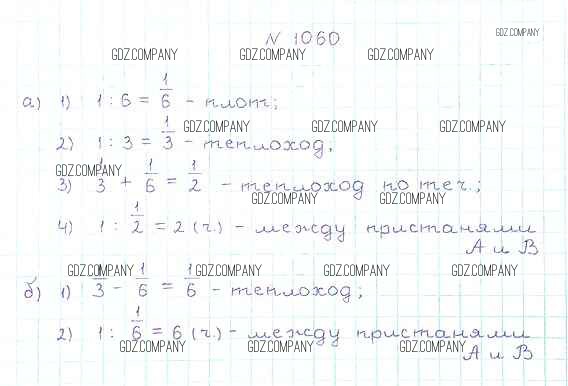 N 1060
GDZ.COMPANY
GDZ.COMPANY GDZ.COMPANY GDZ.COMPANY
а) 1) 1 : 6 = 1/6 - плот;
GDZ.COMPANY GDZ.COMPANY GDZ.COMPANY
2) 1 : 3 = 1/3 - теплоход,
GDZ.COMPANY
3) 1/3 + 1/6 = 1/2 - теплоход по теч.;
GDZ.COMPANY GDZ.COMPANY
4) 1 : 1/2 = 2 (ч.) - между пристанями
А и В
GDZ.COMPANY GDZ.COMPANY GDZ.COMPANY GDZ.COMPANY
б) 1) 1/3 - 1/6 = 1/6 - теплоход;
2) 1 : 1/6 = 6 (ч.) - между пристанями
А и В
GDZ.COMPANY GDZ.COMPANY GDZ.COMPANY